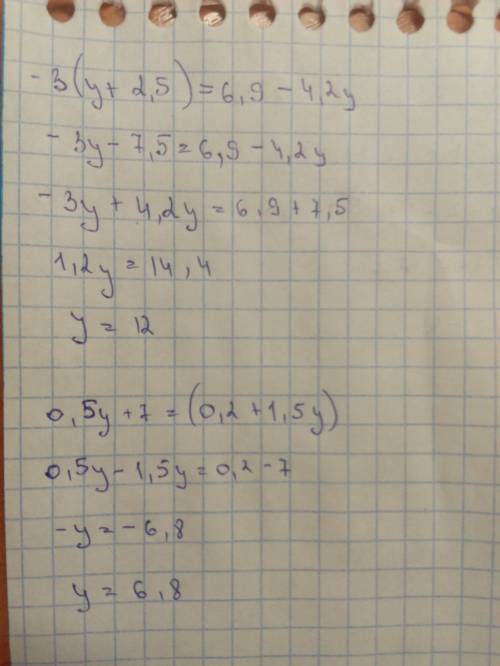 -3(y+2,5)=6,9-4,2y
-3y-7,5=6,9-4,2y
-3y+4,2y=6,9+7,5
1,2y=14,4
y=12
0,5y+7=(0,2+1,5y)
0,5y-1,5y=0,2-7
-y=-6,8
y=6,8